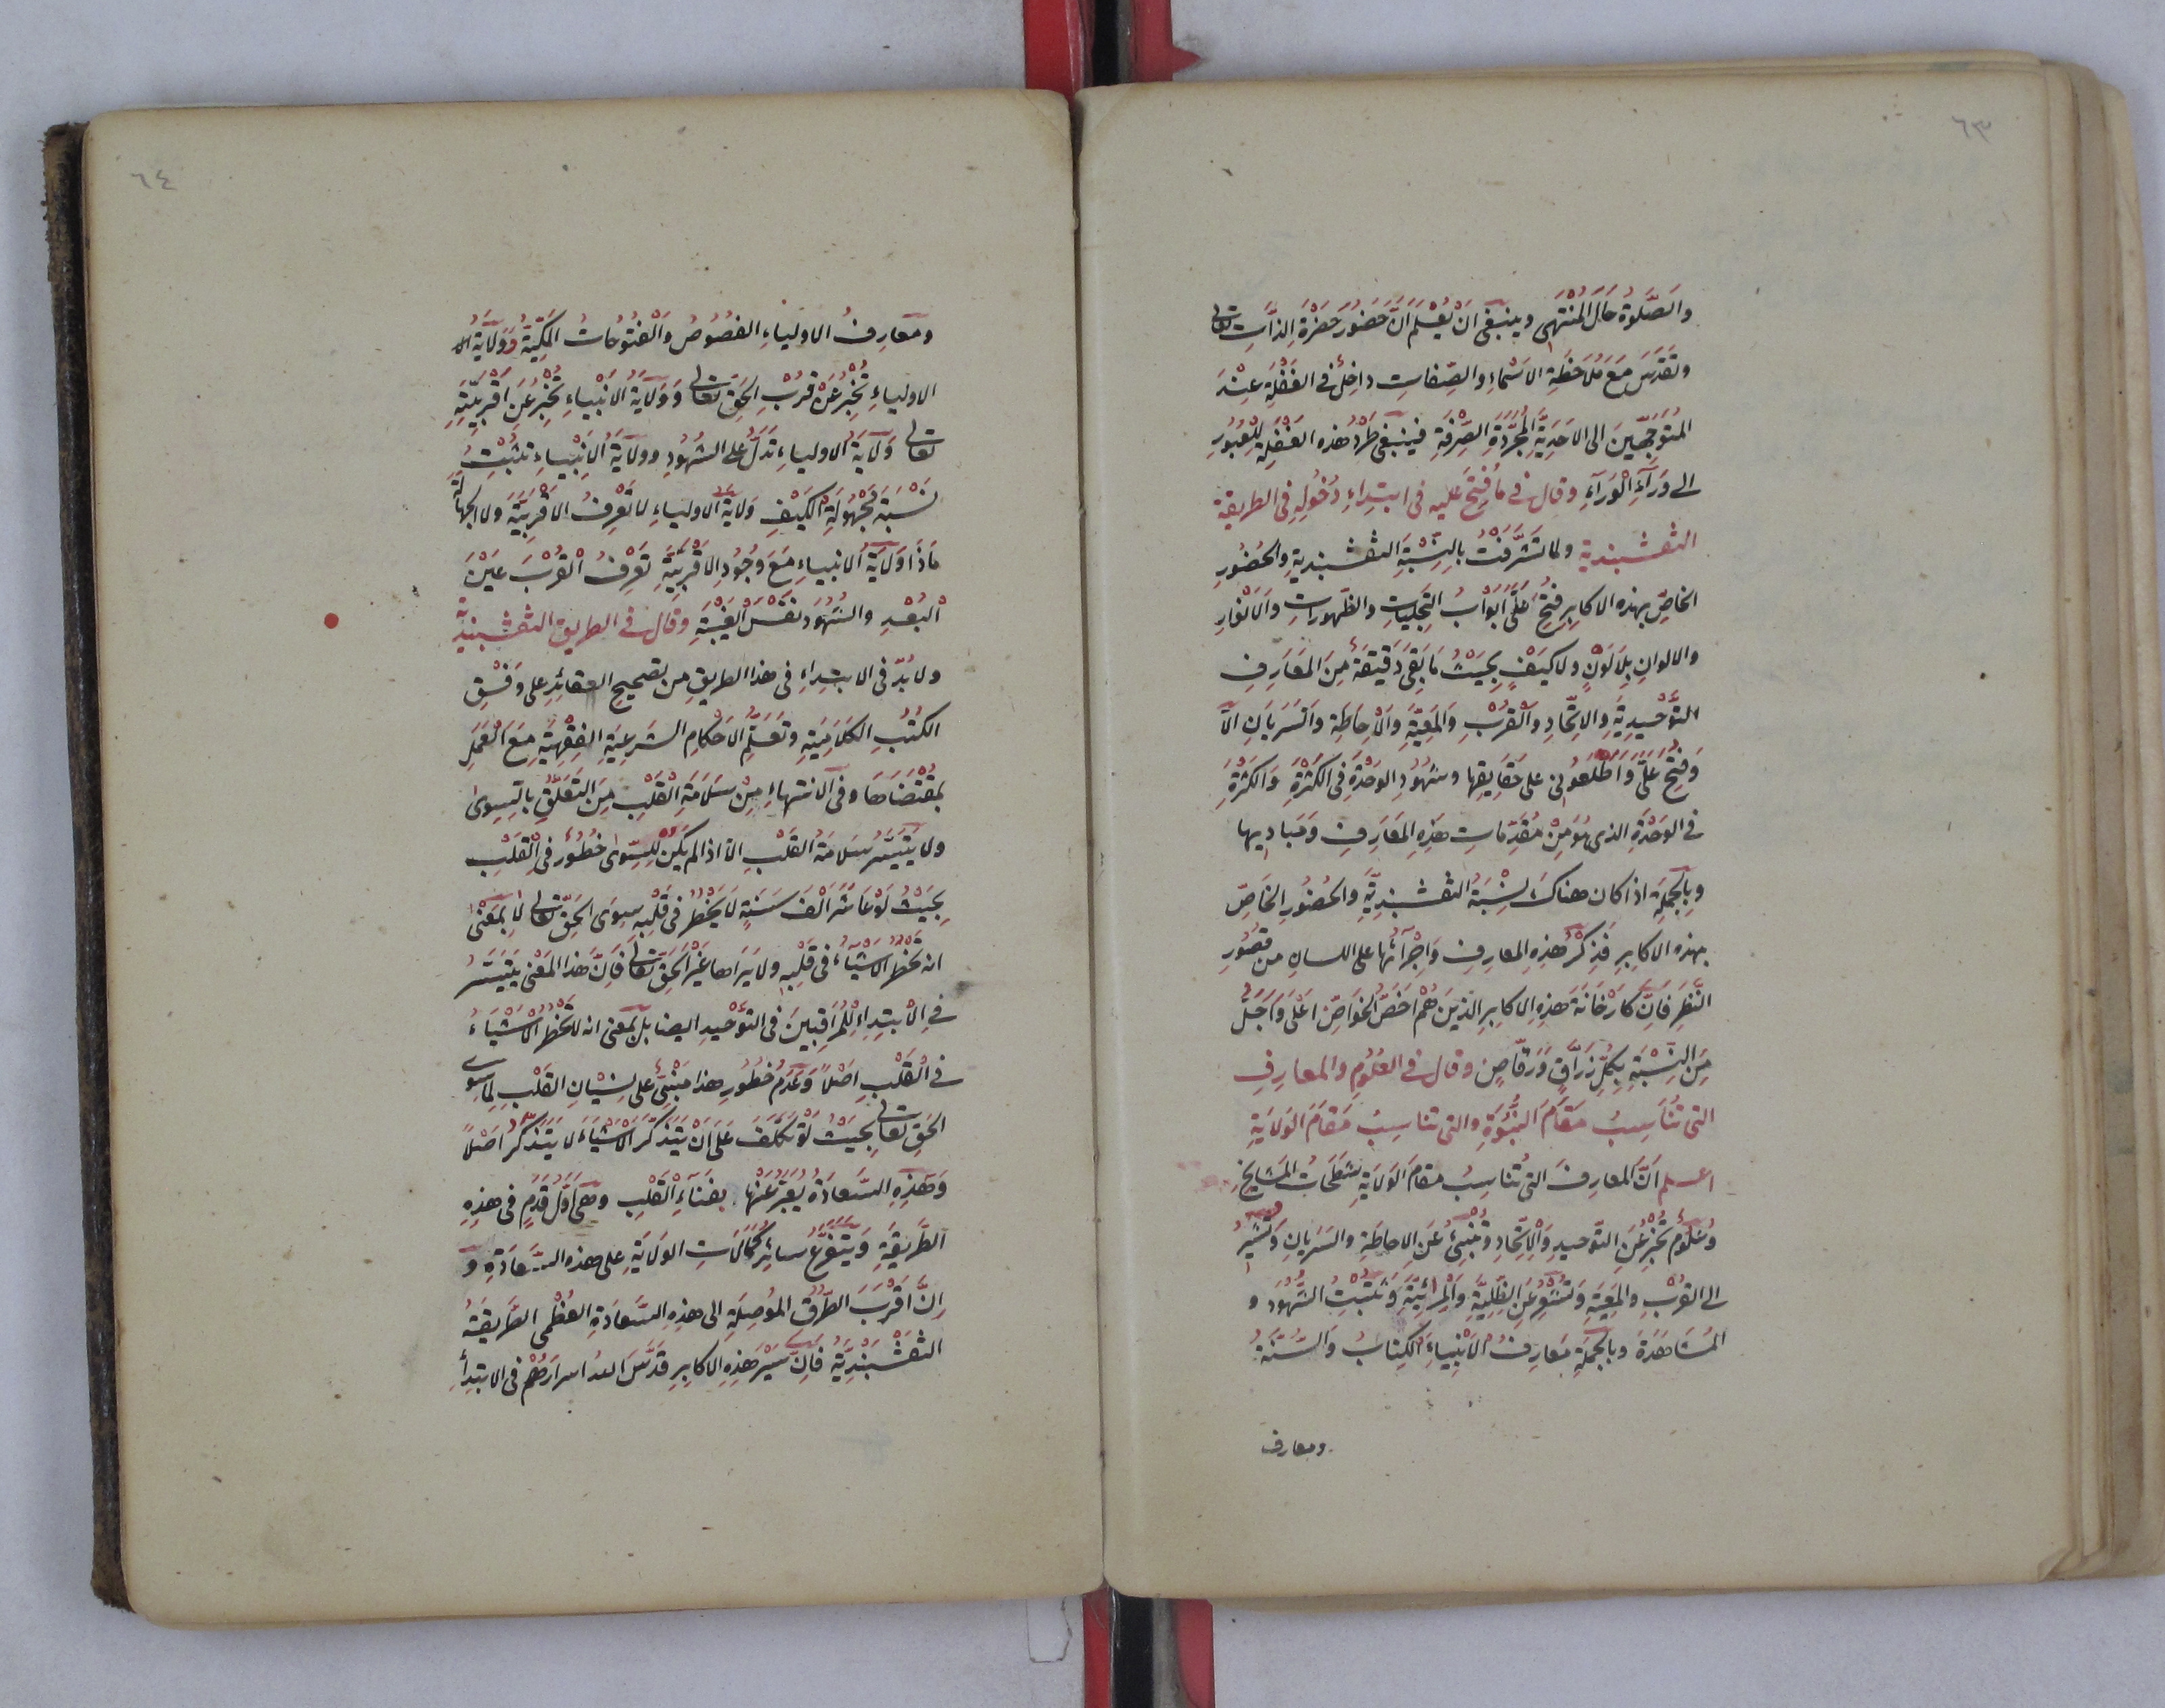 ٦٣
والصلوة حال المنتهى وينبغى ان يعلم ان حضور حضرة الذات تعالى
وتقدس مع ملاحظة الاسماء والصفات داخل فى الغفلة عند
المتوجهين الى الاحدية المجردة الصرفة فينبغى طرد هذه الغفلة للعبور
الى وراء الوراء وقال فى ما فتح عليه فى ابتداء دخوله فى الطريقة
النقشبندية ولما تشرفت بالنسبة النقشبندية والحضور
الخاص بهذه الاكابر فتح على ابواب التجليات والظهورات والانوار
والالوان بلا لون ولا كيف بحيث ما بقى دقيقة من المعارف
التوحيدية والاتحاد والقرب والمعية والاحاطة والسريان الا
وفتح على واطلعونى على حقايقها وشهود الوحدة فى الكثرة والكثرة
فى الوحدة الذى هو من مقدمات هذه المعارف ومباديها
وبالجملة اذا كان هناك نسبة النقشبندية والحضور الخاص
بهذه الاكابر فذكر هذه المعارف واجرآئها على اللسان من قصور
النظر فان كارخانة هذه الاكابر الذين هم اخص الخواص اعلى واجل
من النسبة بكل زراق ورقاص وقال فى العلوم والمعارف
التى تناسب مقام النبوة والتى تناسب مقام الولاية
اعلم ان المعارف التى تناسب مقام الولاية شطحات المشايخ
وعلوم تخبر عن التوحيد والاتحاد وتنبئ عن الاحاطة والسريان وتشير
الى القرب والمعية وتشعر عن الظلية والمرائية وتثبت الشهود و
المشاهدة وبالجملة معارف الانبياء الكتاب والسنة
ومعارف
٦٤
ومعارف الاولياء الفصوص والفتوحات المكية وولاية الا
الاولياء تخبر عن قرب الحق تعالى وولاية الانبياء تخبر عن اقربيته
تعالى ولاية الاولياء تدل على الشهود وولاية الانبياء تثبت
نسبة مجهولة الكيف ولاية الاولياء لا تعرف الاقربية ولا الجهالة
ماذا ولاية الانبياء مع وجود الاقربية تعرف القرب عين
البعد والشهود نفس الغيبة وقال فى الطريق النقشبندية
ولا بد فى الابتداء فى هذا الطريق من تصحيح العقائد على وفق
الكتب الكلامية وتعلم الاحكام الشرعية الفقهية مع العمل
بمقتضاها وفى الانتهاء من سلامة القلب من التعلق بالسوى
ولا يتيسر سلامة القلب الا اذا لم يكن للسوى خطور فى القلب
بحيث لو عاش الف سنة لا يخطر فى قلبه سوى الحق تعالى لا بمعنى
انه تخطر الاشياء فى قلبه ولا يراها غير الحق تعالى فان هذا المعنى يتيسر
فى الابتداء للمراقبين فى التوحيد ايضا بل بمعنى انه لا تخطر الاشياء
فى القلب اصلا وعدم خطور هذا مبنى على نسيان القلب لما سوى
الحق تعالى بحيث لو تكلف على ان يتذكر الاشياء لا يتذكر اصلا
وهذه السعادة يعبر عنها بفناء القلب وهى اول قدم فى هذه
الطريقة ويتفرع سائر كمالات الولاية على هذه السعادة و
ان اقرب الطرق الموصلة الى هذه السعادة العظمى الطريقة
النقشبندية فان سير هذه الاكابر قدس الله اسرارهم فى الابتدأ